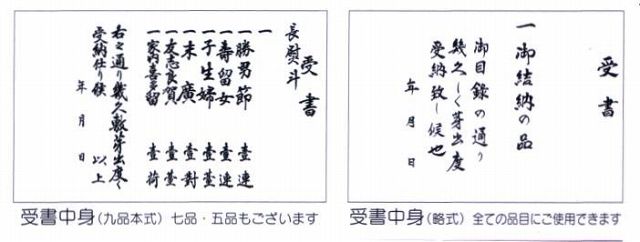 受書
長熨斗
一
一勝男節 壹連
一壽留女 壹連
一子生婦 壹萱
一末廣 壹對
一友志良賀 壹萱
一家内喜多留 壹荷
右之通り幾久敷芽出度く
受納仕り候 以上
年 月 日
受書中身(九品本式) 七品・五品もございます
受書
一御結納の品
御目録の通り
幾久しく芽出度
受納致し候也
年 月 日
受書中身(略式) 全ての品目にご使用できます